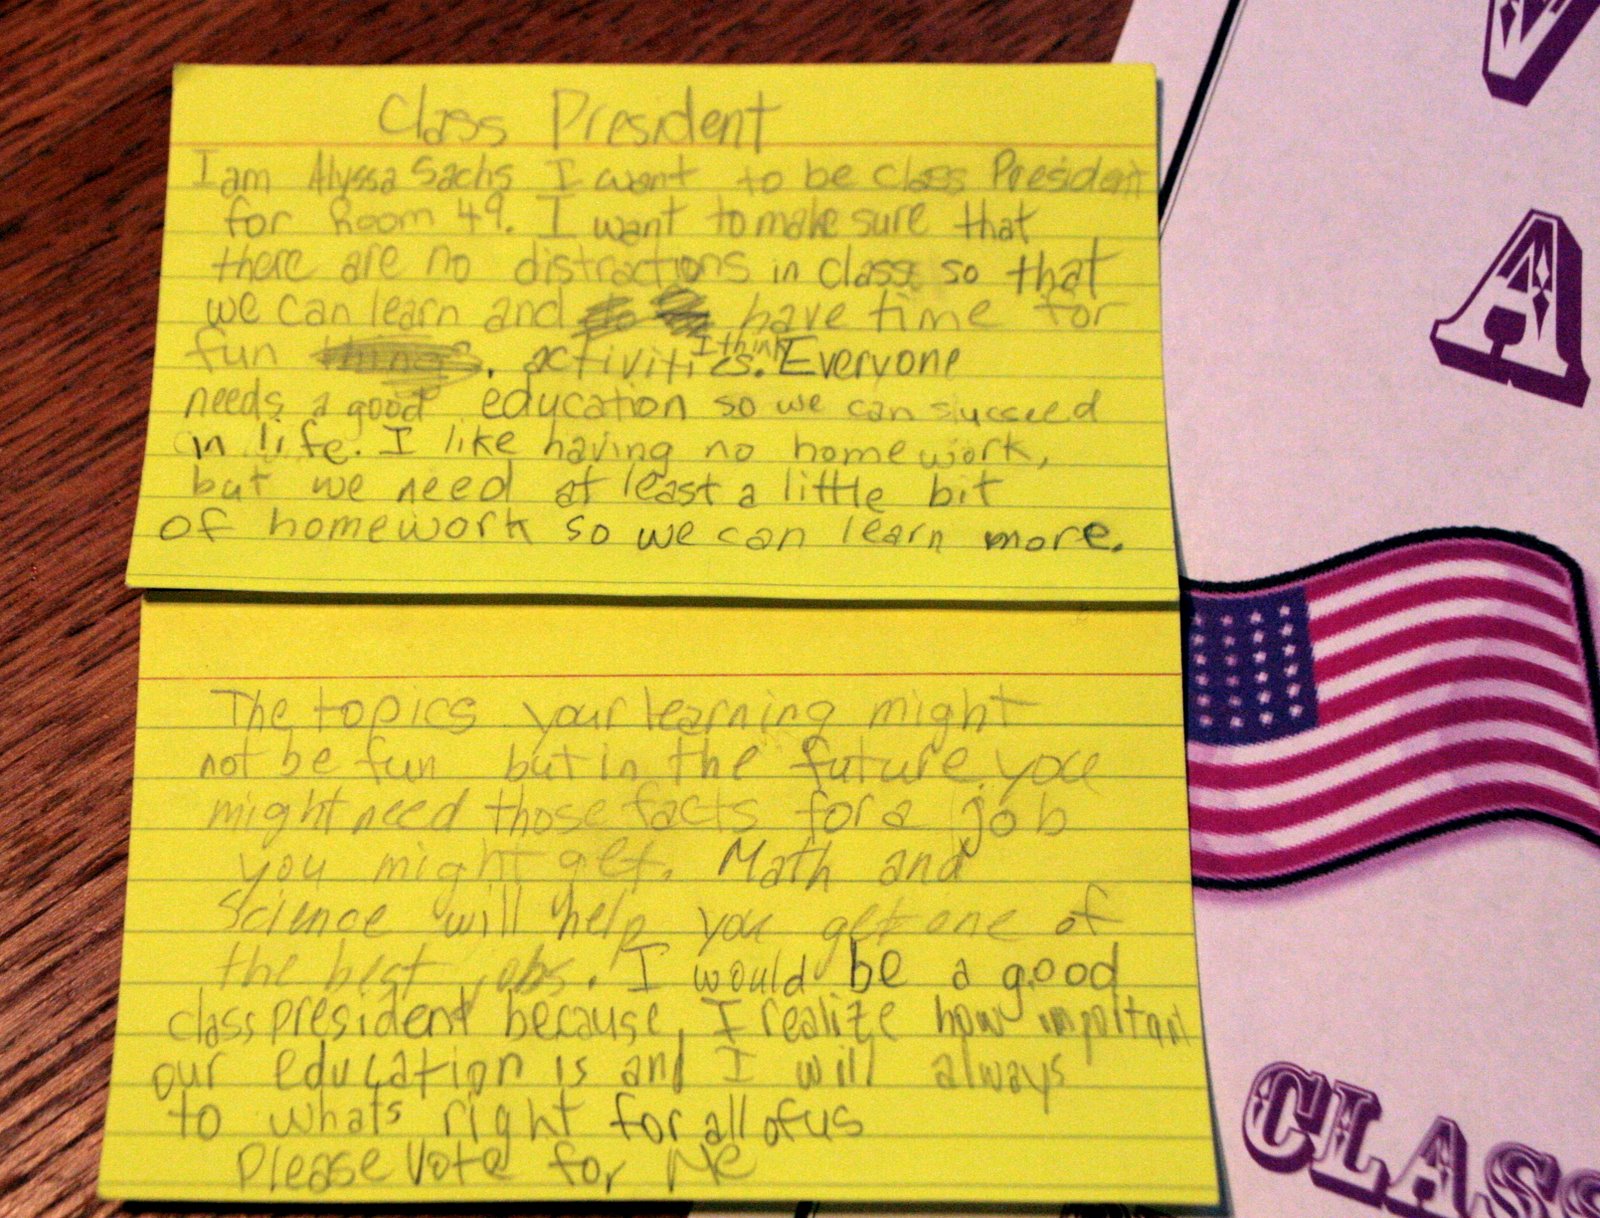 Class President
I am Alyssa Sachs I want to be class President
for Room 49. I want to make sure that
there are no distractions in class so that
we can learn and have time for
fun things. activities. I think Everyone
needs a good education so we can succeed
in life. I like having no homework,
but we need at least a little bit
of homework so we can learn more.
The topics your learning might
not be fun but in the future you
might need those facts for a job
you might get. Math and
Science will help you get one of
the best jobs. I would be a good
class president because, I realize how important
our education is and I will always
to whats right for all of us
Please Vote for Me
V
A
CLASS